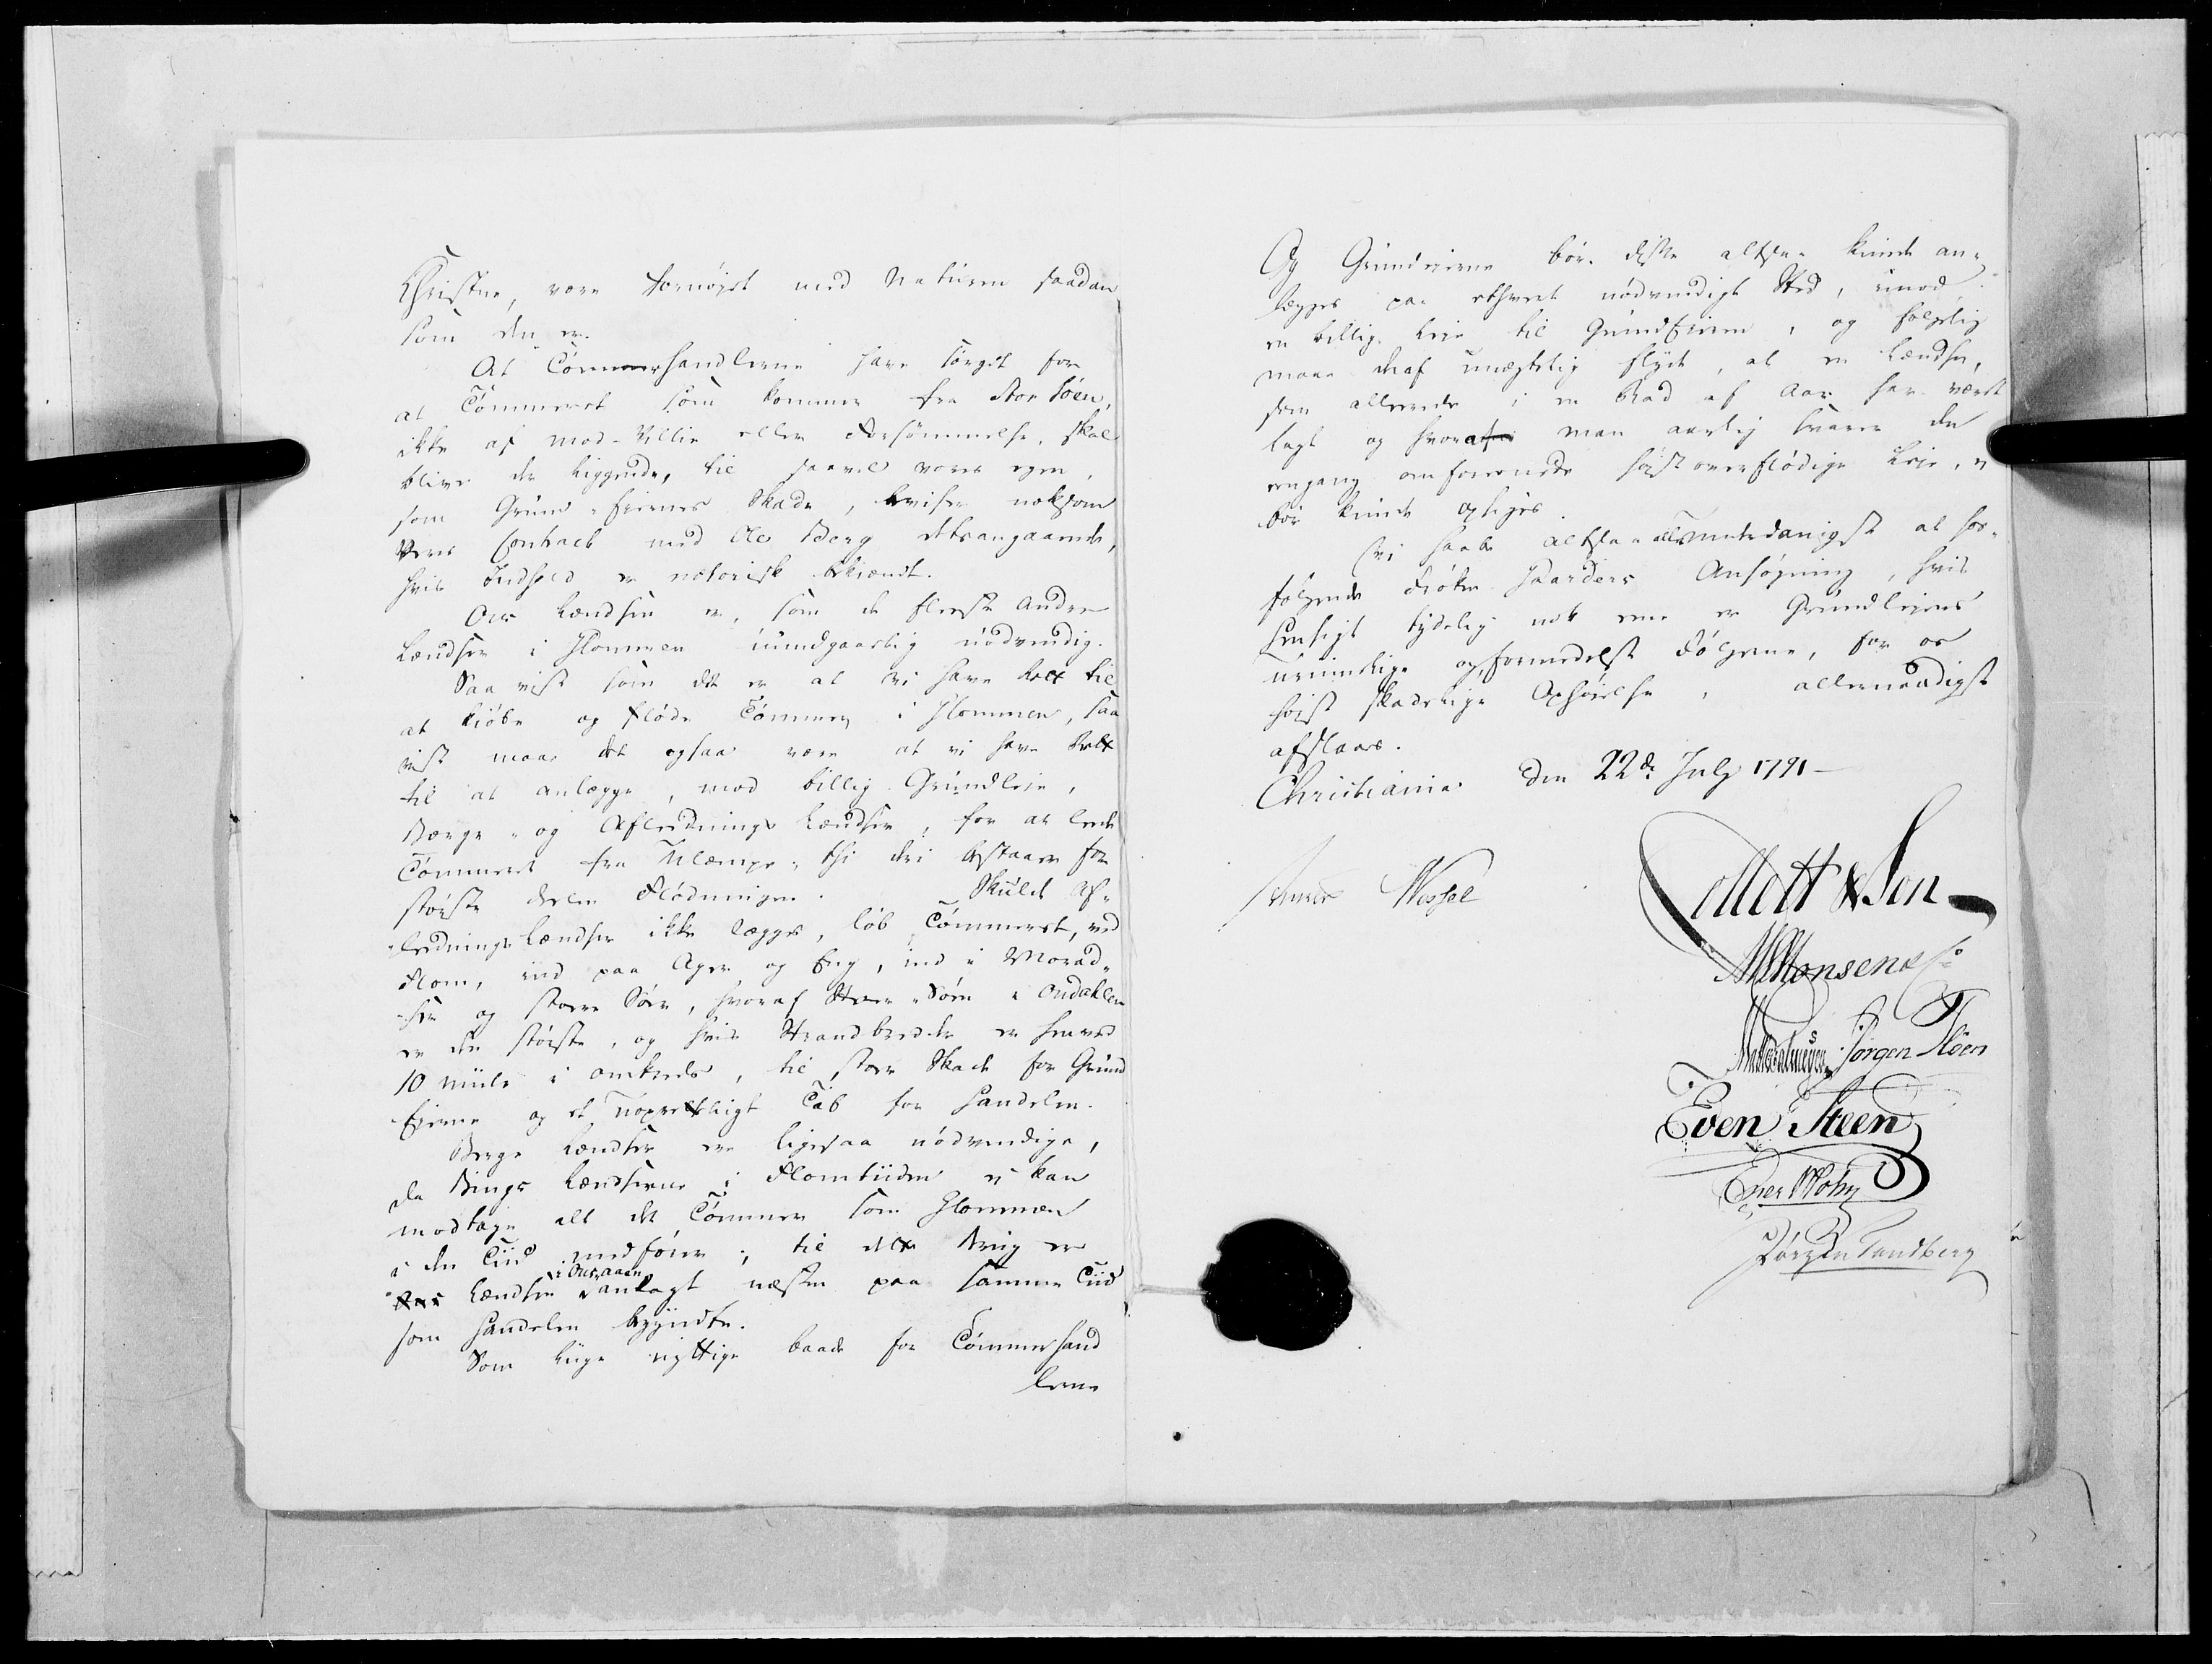 Christne, vare fornøjet med Naturen saadan
som den er.
At Tømmerhandlerne have sørget for
at Tømmeret som kommer fra Stor Søen,
ikke af Mod-Villie eller Forsømmelse, skal
blive der liggende, til saavel vores egen,
som Grund-Eiernes Skade, beviser noksom
Vores Contract med Ole Berg dettangaaende,
hvis Indhold er notorisk bekiændt.
Oer Lændsen er, som de fleeste andre
Lændser i Glommen uundgaaelig nødvendig.
Saa vist som det er at vi have Rett til
at kiøbe og fløde Tømmer i Glommen, saa
vist maae det ogsaa være at vi have Rett
til at anlægge, mod billig Grundleie,
Berge- og Aflednings Lændser, for at lede
Tømmeret fra ; thi deri bestaaer for
største deelen Flødningen. Skulde Af-
lednings Lændser ikke lægges, løb Tømmeret, ved
Flom, ind paa Ager og Eng, ind i Morad-
ser og store Søer, hvoraf Søen i Oudahlen
er den største, og hvis Strandbredde er henved
10 Miile i omkreds, til stor Skade for Grund
Eierne og et uopretteligt Tab for Handelen.
Berge Lændser ere ligesaa nødvendige,
da Bings Lændserne i Flomtiiden ei kan
modtage alt det Tømmer som Glommen
i den Tiid medfører; til dette Brug er
i Oeraaen
Lændsen anlagt næsten paa samme Tiid
som Handelen begyndte.
Som liige nyttige baade for Tømmerhand
lerne
Og Grundeierne bør disse altsaa kunde an-
lægges paa ethvert nødvendigt Sted, imod
en billig Leie til Grundeieren, og følgelig
maae deraf unægtelig flyde, at en Lændse,
som allerede i en Rad af Aar har været
lagt og hvoraf man aarlig svarer den
eengang omforenede høist overflødige Leie, ei
bør kunde ophæves.
Vi haabe altsaa allerunderdanigst at her-
følgende Frøken Haarders Ansøgning, hvis
Hensigt tydelig nok er Grundlejens
urimelige og, formedelst Følgerne, for os
høist skadelige Ophøielse, allernaadigst
afslaaes.
Christiania den 22de July 1791 –
Wessel
Collett & Son
MMonsen & Co
Jørgen Steen
Even Steen
Peer Mohn
Jørgen Tandberg